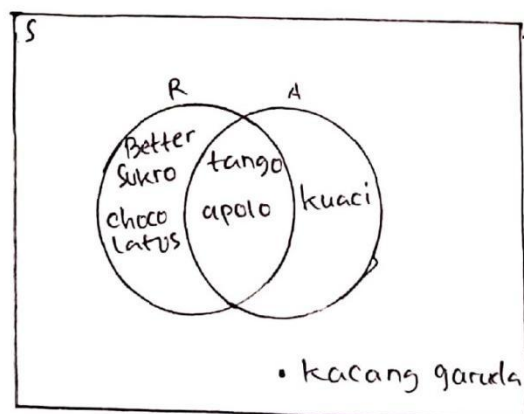 S
R A
Better
Sukro
choco
Latos
tango
apolo
kuaci
• kacang garuda